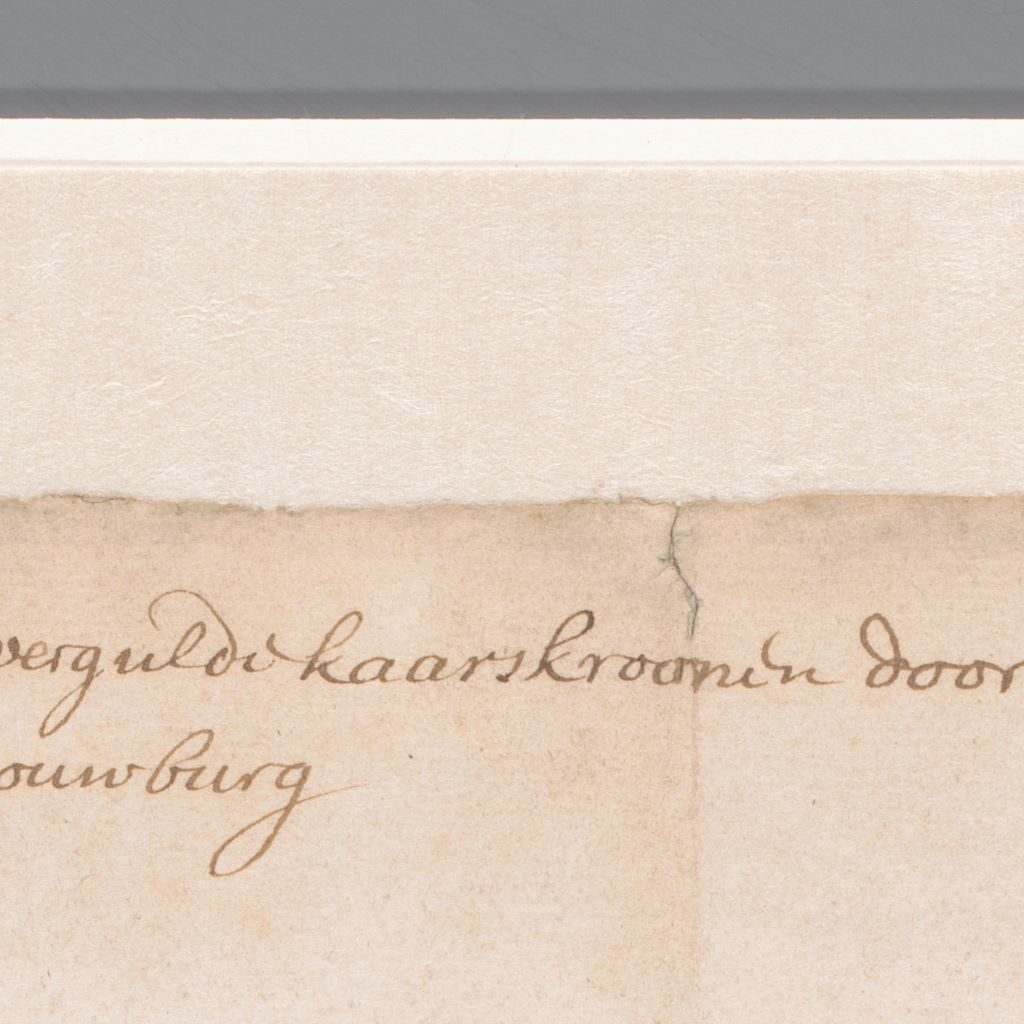 vergulde kaarskroonen door
ouwburg